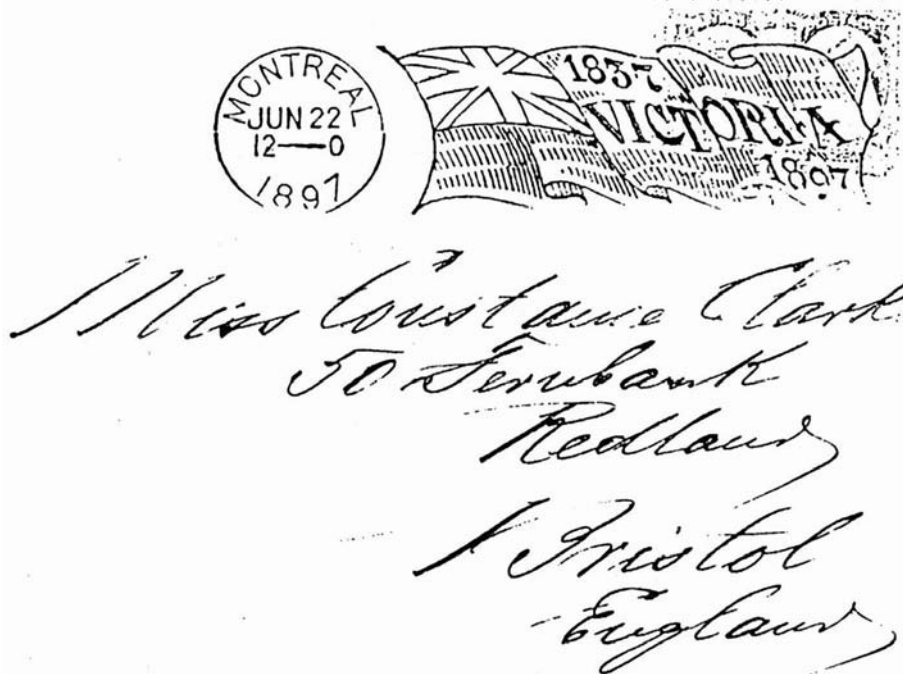 MONTREAL
JUN 22
12—0
1897
1837
VICTORIA
1897
Miss Constance Clark
50 Fernbank
Redland
Bristol
England